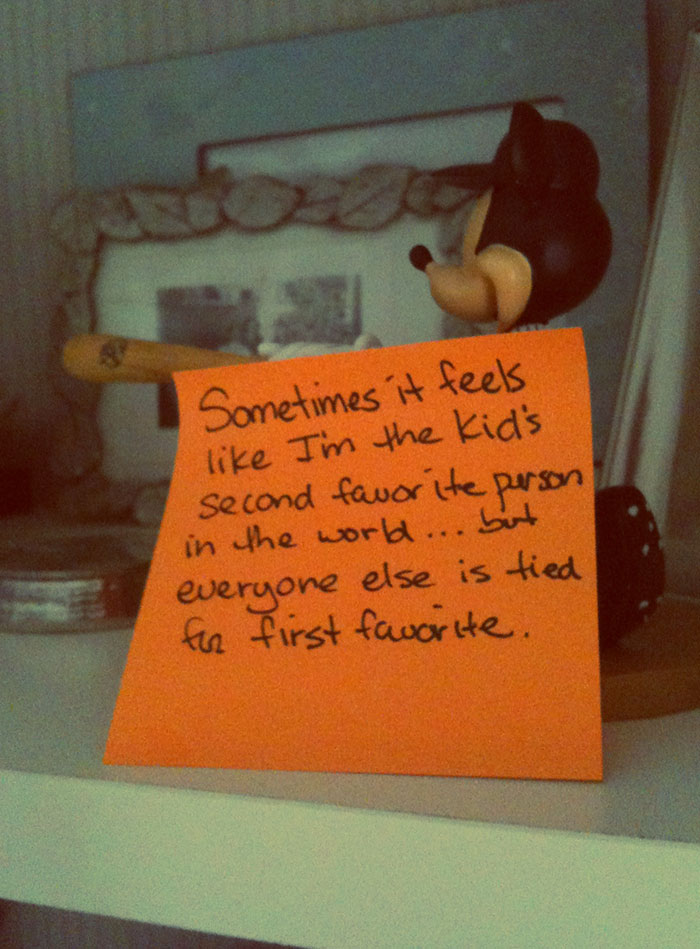 Sometimes it feels
like I'm the kid's
second favorite person
in the world... but
everyone else is tied
for first favorite.